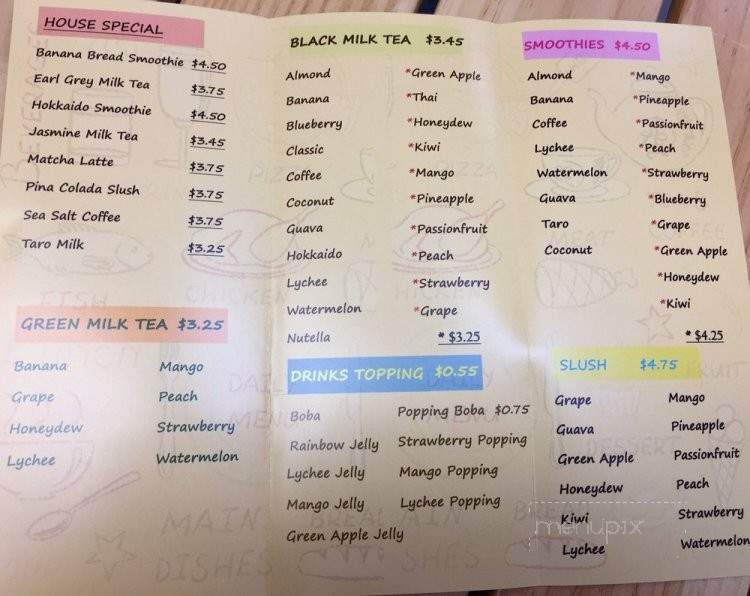 HOUSE SPECIAL
Banana Bread Smoothie $4.50
Earl Grey Milk Tea $3.75
Hokkaido Smoothie $4.50
Jasmine Milk Tea $3.45
Matcha Latte $3.75
Pina Colada Slush $3.75
Sea Salt Coffee $3.75
Taro Milk $3.25
GREEN MILK TEA $3.25
Banana Mango
Grape Peach
Honeydew Strawberry
Lychee Watermelon
BLACK MILK TEA $3.45
Almond *Green Apple
Banana *Thai
Blueberry *Honeydew
Classic *Kiwi
Coffee *Mango
Coconut *Pineapple
Guava *Passionfruit
Hokkaido *Peach
Lychee *Strawberry
Watermelon *Grape
Nutella * $3.25
DRINKS TOPPING $0.55
Boba Popping Boba $0.75
Rainbow Jelly Strawberry Popping
Lychee Jelly Mango Popping
Mango Jelly Lychee Popping
Green Apple Jelly
SMOOTHIES $4.50
Almond *Mango
Banana *Pineapple
Coffee *Passionfruit
Lychee *Peach
Watermelon *Strawberry
Guava *Blueberry
Taro *Grape
Coconut *Green Apple
*Honeydew
*Kiwi
* $4.25
SLUSH $4.75
Grape Mango
Guava Pineapple
Green Apple Passionfruit
Honeydew Peach
Kiwi Strawberry
Lychee Watermelon
menupix
BEVERAGES
PIZZA
FISH
CHICKEN
DAILY
MENU
MAIN
DISHES
DESSERT
FRUIT